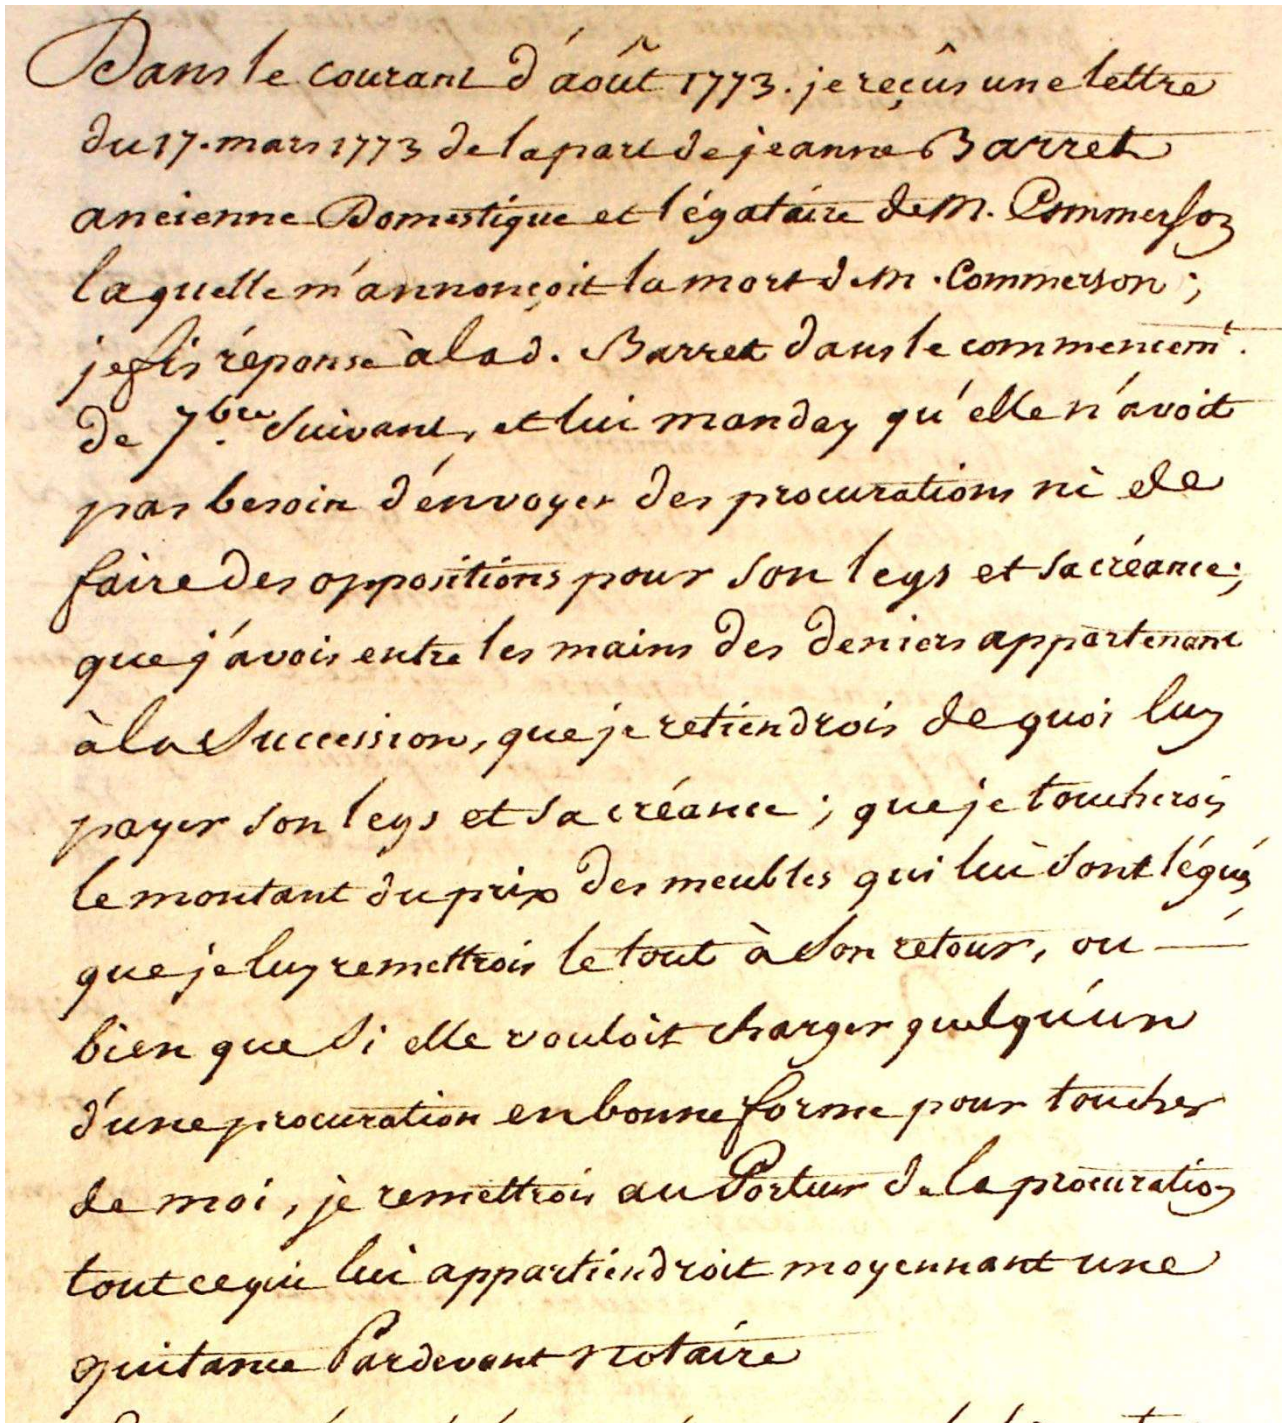 Dans le courant d'août 1773. je reçûs une lettre
du 17. mars 1773 de la part de jeanne Barret
ancienne Domestique et légataire de M. Commerson
laquelle m'annonçoit la mort de M. Commerson ;
je fis réponse à lad. Barret dans le commencemt.
de 7bre. suivant, et lui manday qu'elle n'avoit
pas besoin d'envoyer des procurations ni de
faire des oppositions pour son legs et sa créance ;
que j'avois entre les mains des deniers appartenant
à la succession, que je retiendrois de quoi luy
payer son legs et sa créance ; que je toucherois
le montant du prix des meubles qui lui sont légués
que je luy remettrois le tout à son retour, ou
bien que si elle vouloit charger quelqu'un
d'une procuration en bonne forme pour toucher
de moi, je remettrois au Porteur de la procuration
tout ce qui lui appartiendroit moyennant une
quitance Pardevant notaire